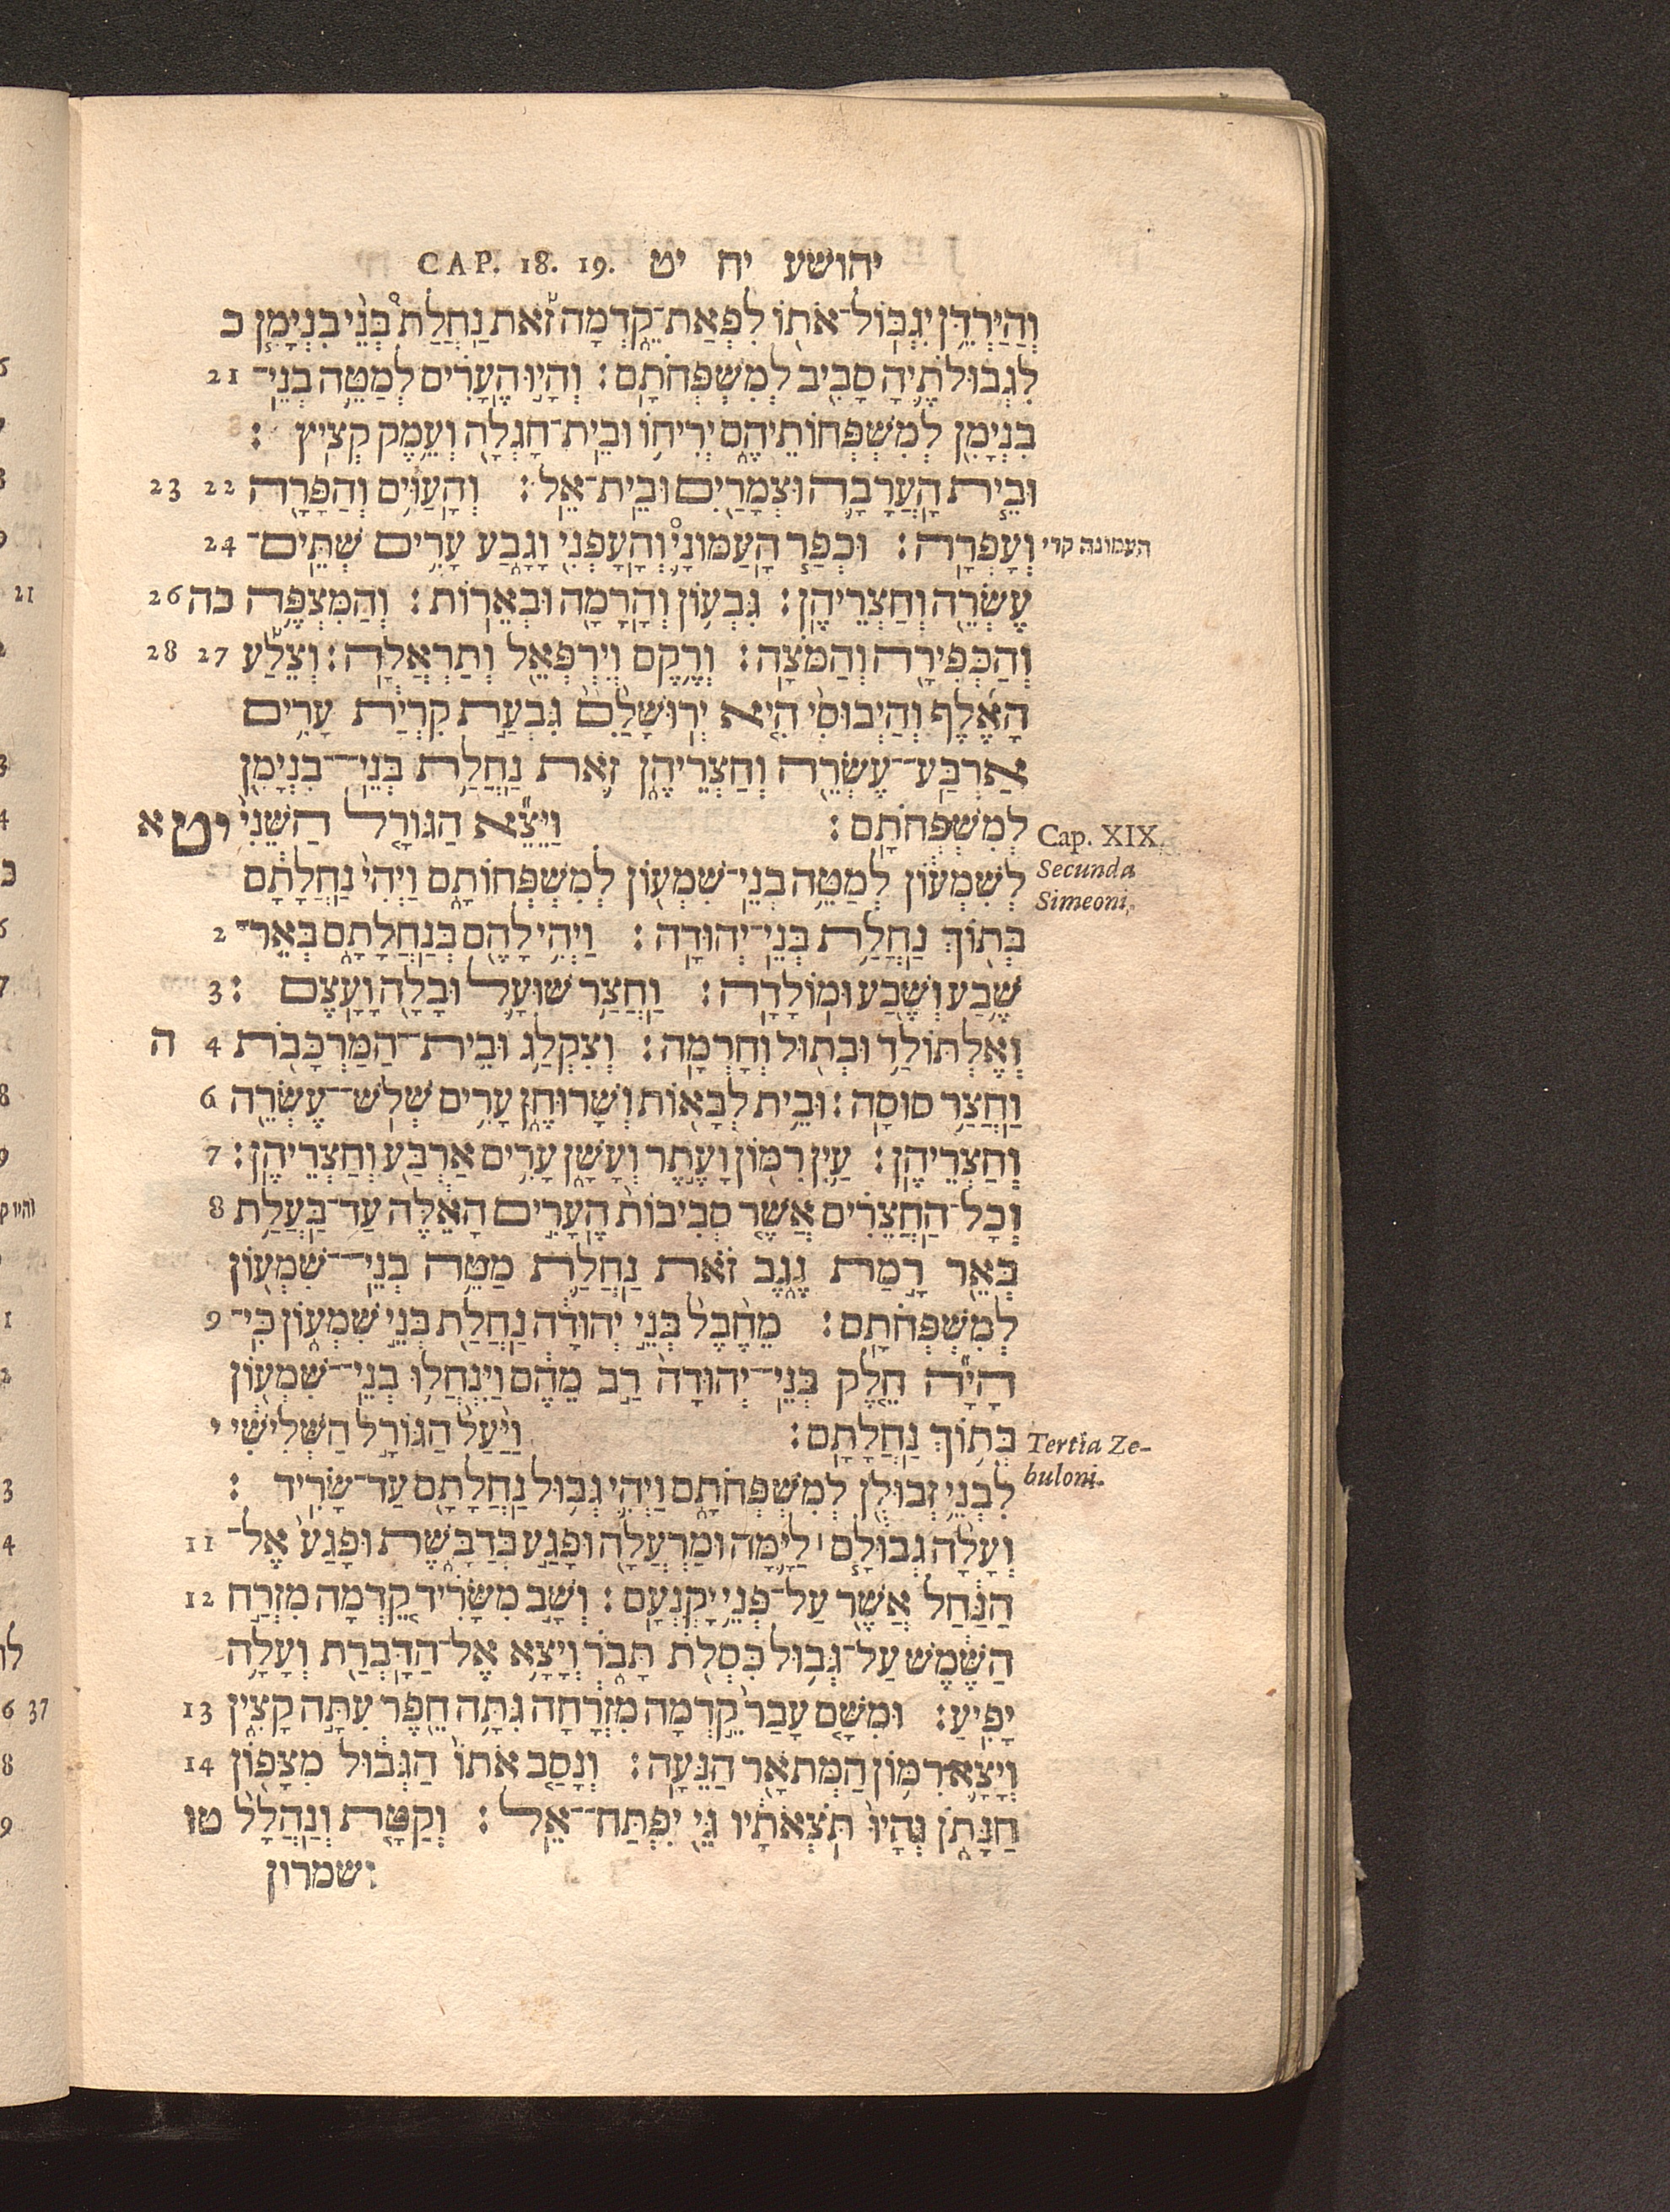 יהושע יח יט CAP. 18. 19.
וְהַיַּרְדֵּ֥ן יִגְבֹּֽול־אֹתֹ֖ו לִפְאַת־קֵ֑דְמָה זֹ֡את נַחֲלַת֩ בְּנֵ֨י בִנְיָמִ֧ן כ
לִגְבֽוּלֹתֶ֛יהָ סָבִ֖יב לְמִשְׁפְּחֹתָֽם׃ וְהָי֣וּ הֶֽעָרִ֗ים לְמַטֵּ֛ה בְּנֵ֥י־ 21
בִנְיָמִ֖ן לְמִשְׁפְּחֽוֹתֵיהֶ֑ם יְרִיחֹ֥ו וּבֵית־חָגְלָ֖ה וְעֵ֥מֶק קְצִֽיץ ׃
וּבֵ֧ית הָֽעֲרָבָ֛ה וּצְמָרַ֖יִם וּבֵֽית־אֵֽל׃ וְהָֽעַוִּ֥ים וְהַפָּרָ֖ה 22 23
וְעָפְרָֽה׃ וּכְפַ֧ר הָֽעַמּוֹנָ֛י וְהָֽעָפְנִ֖י וָגָ֑בַע עָרִ֥ים שְׁתֵּֽים־ 24 העמונה קרי
עֶשְׂרֵ֖ה וְחַצְרֵיהֶֽן׃ גִּבְעֹ֥ון וְהָֽרָמָ֖ה וּבְאֵרֹֽות׃ וְהַמִּצְפֶּ֥ה כה 26
וְהַכְּפִירָ֖ה וְהַמֹּצָֽה׃ וְרֶ֥קֶם וְיִרְפְּאֵ֖ל וְתַרְאֲלָֽה׃ וְצֵלַ֡ע 27 28
הָאֶ֜לֶף וְהַיְבוּסִ֨י הִ֤יא יְרֽוּשָׁלַ֙םִ֙ גִּבְעַ֣ת קִרְיַ֔ת עָרִ֥ים
אַרְבַּֽע־עֶשְׂרֵ֖ה וְחַצְרֵיהֶ֑ן זֹ֛את נַֽחֲלַ֥ת בְּנֵֽי־בִנְיָמִ֖ן
לְמִשְׁפְּחֹתָֽם׃ וַיֵּצֵ֞א הַגּוֹרָ֤ל הַשֵּׁנִי֙ יט א Cap. XIX.
לְשִׁמְעֹ֔ון לְמַטֵּ֥ה בְנֵֽי־שִׁמְעֹ֖ון לְמִשְׁפְּחוֹתָ֑ם וַֽיְהִי֙ נַֽחֲלָתָ֔ם Secunda
בְּתֹ֖וךְ נַֽחֲלַ֥ת בְּנֵֽי־יְהוּדָֽה׃ וַיְהִ֥י לָהֶ֖ם בְּנַֽחֲלָתָ֑ם בְּאֵֽר־ 2 Simeoni.
שֶׁ֥בַע וְשֶׁ֖בַע וּמֹולָדָֽה׃ וַחֲצַ֥ר שׁוּעָ֛ל וּבָלָ֖ה וָעָֽצֶם ׃ 3
וְאֶלְתּוֹלַ֥ד וּבְת֖וּל וְחָרְמָֽה׃ וְצִקְלַ֥ג וּבֵֽית־הַמַּרְכָּבֹ֖ת 4 ה
וַחֲצַ֥ר סוּסָֽה׃ וּבֵ֥ית לְבָאֹ֖ות וְשָׁרוּחֶ֑ן עָרִ֥ים שְׁלֹֽשׁ־עֶשְׂרֵ֖ה 6
וְחַצְרֵיהֶֽן׃ עַ֥יִן רִמֹּ֖ון וָעֶ֣תֶר וְעָשָׁ֑ן עָרִ֥ים אַרְבַּ֖ע וְחַצְרֵיהֶֽן׃ 7
וְכָל־הַֽחֲצֵרִ֗ים אֲשֶׁ֤ר סְבִיבוֹת֙ הֶֽעָרִ֣ים הָאֵ֔לֶּה עַד־בַּֽעֲלַ֥ת 8
בְּאֵ֖ר רָ֣מַת נֶ֑גֶב זֹ֗את נַֽחֲלַ֛ת מַטֵּ֥ה בְנֵֽי־שִׁמְעֹ֖ון
לְמִשְׁפְּחֹתָֽם׃ מֵחֶ֙בֶל֙ בְּנֵ֣י יְהוּדָ֔ה נַֽחֲלַ֖ת בְּנֵ֣י שִׁמְעֹ֑ון כִּֽי־ 9
הָיָ֞ה חֵ֤לֶק בְּנֵֽי־יְהוּדָה֙ רַ֣ב מֵהֶ֔ם וַיִּנְחֲל֥וּ בְנֵֽי־שִׁמְעֹ֖ון
בְּתֹ֥וךְ נַֽחֲלָתָֽם׃ וַיַּ֙עַל֙ הַגּוֹרָ֣ל הַשְּׁלִישִׁ֔י י Tertia Ze-
לִבְנֵ֥י זְבוּלֻ֖ן לְמִשְׁפְּחֹתָ֑ם וַיְהִ֛י גְּב֥וּל נַחֲלָתָ֖ם עַד־שָׂרִֽיד ׃ buloni.
וְעָלָ֨ה גְבוּלָ֧ם ׀ לַיָּ֛מָּה וּמַרְעֲלָ֖ה וּפָגַ֣ע בְּדַבָּ֑שֶׁת וּפָגַע֙ אֶל־ 11
הַנַּ֔חַל אֲשֶׁ֖ר עַל־פְּנֵ֥י יָקְנְעָֽם׃ וְשָׁ֣ב מִשָּׂרִ֗יד קֵ֚דְמָה מִזְרַ֣ח 12
הַשֶּׁ֔מֶשׁ עַל־גְּב֥וּל כִּסְלֹ֖ת תָּבֹ֑ר וְיָצָ֥א אֶל־הַדָּֽבְרַ֖ת וְעָלָ֥ה
יָפִֽיעַ׃ וּמִשָּׁ֤ם עָבַר֙ קֵ֣דְמָה מִזְרָ֔חָה גִּתָּ֥ה חֵ֖פֶר עִתָּ֣ה קָצִ֑ין 13
וְיָצָ֛א רִמֹּ֥ון הַמְּתֹאָ֖ר הַנֵּעָֽה׃ וְנָסַ֤ב אֹתוֹ֙ הַגְּב֔וּל מִצָּפֹ֖ון 14
חַנָּתֹ֑ן וְהָיוּ֙ תֹּֽצְאֹתָ֔יו גֵּ֖י יִפְתַּח־אֵֽל׃ וְקַטָּ֤ת וְנַֽהֲלָל֙ טו
ושמרון